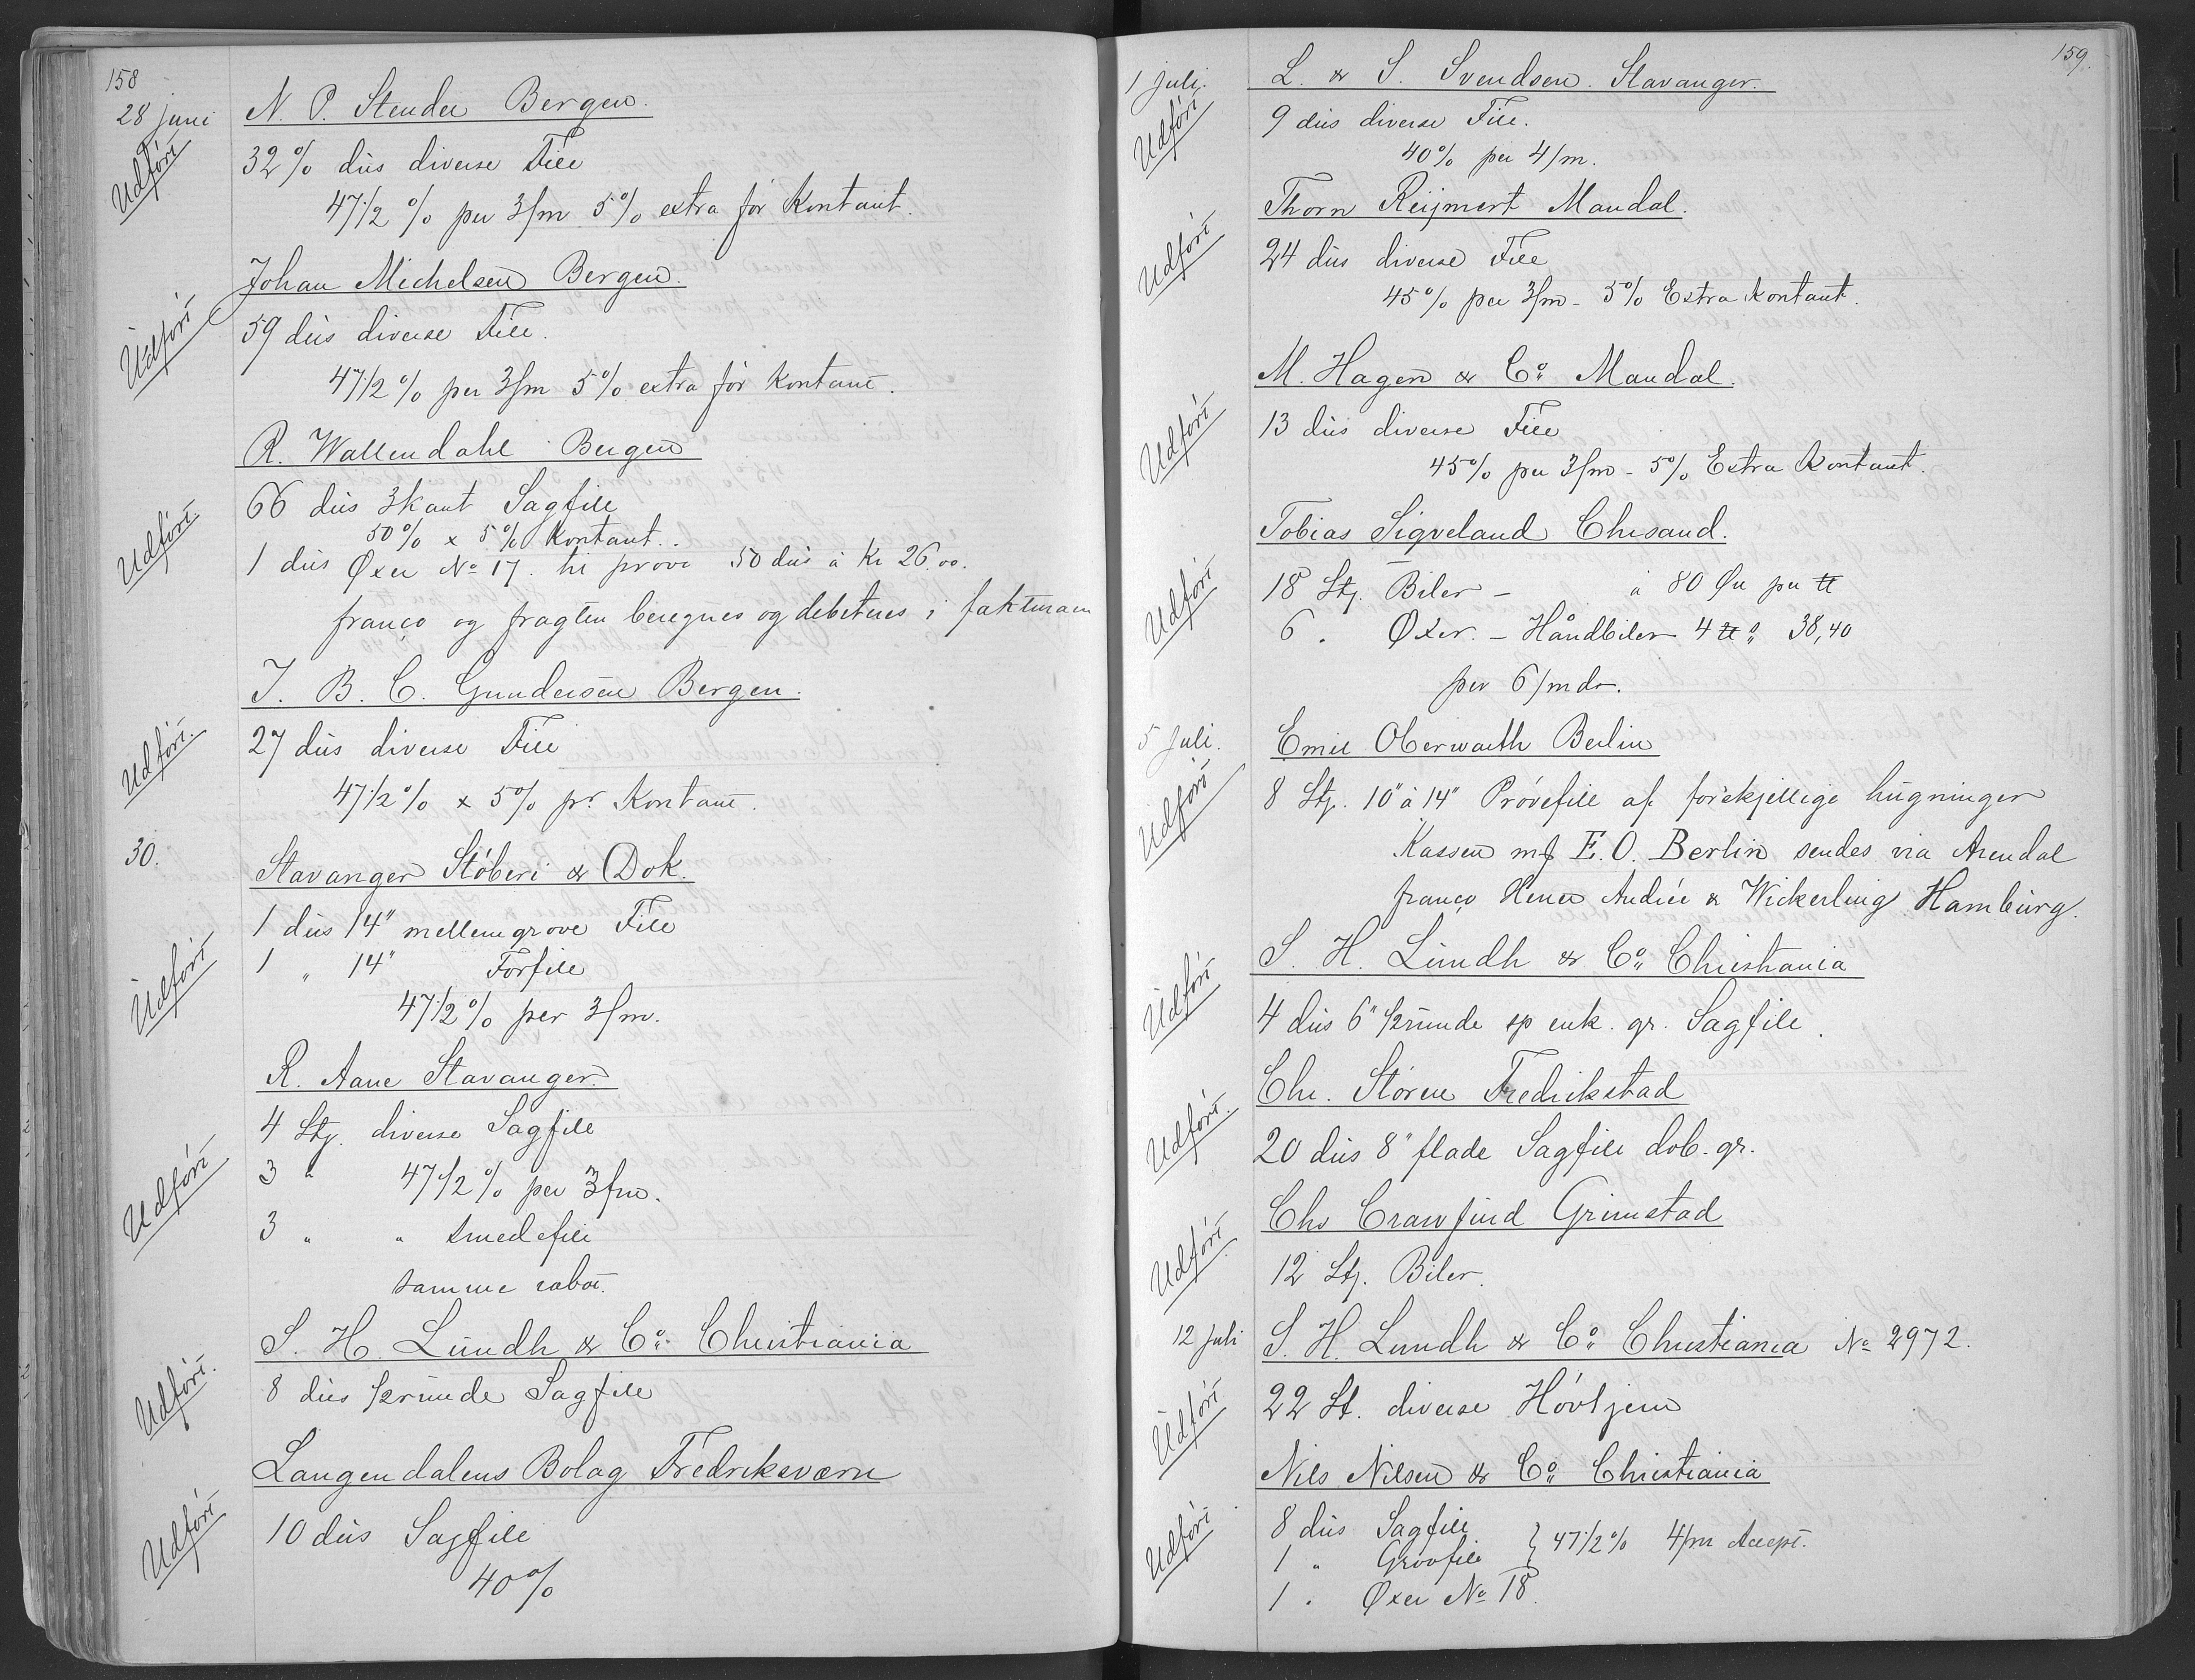 158
28 juni
N. P. Stender Bergen.
Udført
32 % dùs diverse File
47 1/2 % per 3/m 5% extra för Kontant.
Johan Michelsen Bergen.
Udført
59 dùs diverse File.
47 1/2 % per 3/m 5% extra för Kontant.
R. Wallendahl Bergen
66 dùs 3kant Sagfile
Udført
50% x 5% Kontant.
1 dùs Øxer No 17. til prøve 50 dùs à Kr 26.00.
franco og fragten beregnes og debiteres i fakturaen
J. B. C. Gundersen Bergen.
Udført.
27 dùs diverse File
47 1/2 % x 5% pr Kontant.
30.
Stavanger Støberi & Dok.
1 dùs 14" mellemgrove File
Udført
1 " 14" Forfile
47 1/2 % per 3/m.
R. Aane Stavanger.
4 Stj. diverse Sagfile
Udført
3 " 47 1/2 % per 3/m.
3 " " Smedefile
samme rabat.
S. H. Lùndh & Co. Christiania
Udført.
8 dùs 1/2rùnde Sagfile
Langendalens Bolag Fredriksværn
Udført
10 dùs Sagfile
40%
159.
1 Juli.
L. & S. Svendsen. Stavanger.
Udført
9 dùs diverse File.
40% per 4/m.
Thorn Reijmert Mandal.
Udført
24 dùs diverse File
45% per 3/m - 5% Extra Kontant.
M. Hagen & Co. Mandal.
Udført
13 dùs diverse File
45% per 3/m - 5% Extra Kontant.
Tobias Sigveland Chrsand.
Udført
18 Stj. Biler - à 80 Øre per ℔
6 . Øxer. - Håndbiler 4 ℔ 38,40
per 6/mdr.
5 Juli.
Emil Oberwarth Berlin
Udført
8 Stj. 10" à 14" Prövefile af forskjellige hùgninger
Kassen mrk E. O. Berlin sendes via Arendal
franco Herrer Andrée & Wickerling Hambùrg.
S. H. Lùndh & Co. Christiania
Udført
4 dùs 6" 1/2rùnde sp enk. gr. Sagfile.
Chr. Støren Fredrikstad
Udført.
20 dùs 8" flade Sagfile dob. gr.
Chr Crawfurd Grimstad
Udført
12 Stj. Biler.
12 Juli
S. H. Lundh & Co. Christiania No 2972.
Udført
22 St. diverse Hövljern
Nils Nilsen & Co. Christiania
Udført
8 dùs Sagfile
1 " Grovfile } 47 1/2 % 4/m Accept.
1 " Øxer No 18.